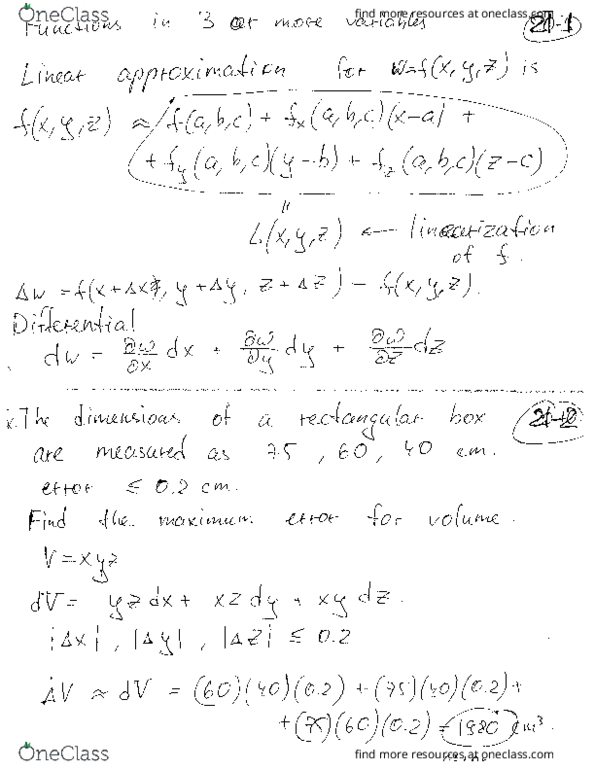 OneClass
find more resources at oneclass.com
Functions in 3 or more variables
21-1
Linear approximation for w=f(x,y,z) is
f(x,y,z) ≈ f(a,b,c) + fx(a,b,c)(x-a) +
+ fy(a,b,c)(y-b) + fz(a,b,c)(z-c)
"
L(x,y,z) ← linearization
of f.
Δw = f(x+Δx, y+Δy, z+Δz) - f(x,y,z).
Differential
dw = ∂w/∂x dx + ∂w/∂y dy + ∂w/∂z dz
The dimensions of a rectangular box
21-2
are measured as 75, 60, 40 cm.
error ≤ 0.2 cm.
Find the maximum error for volume.
V=xyz
dV = yz dx + xz dy + xy dz.
|Δx|, |Δy|, |Δz| ≤ 0.2
ΔV ≈ dV = (60)(40)(0.2) + (75)(40)(0.2) +
+ (75)(60)(0.2) = 1980 cm³.
OneClass
find more resources at oneclass.com